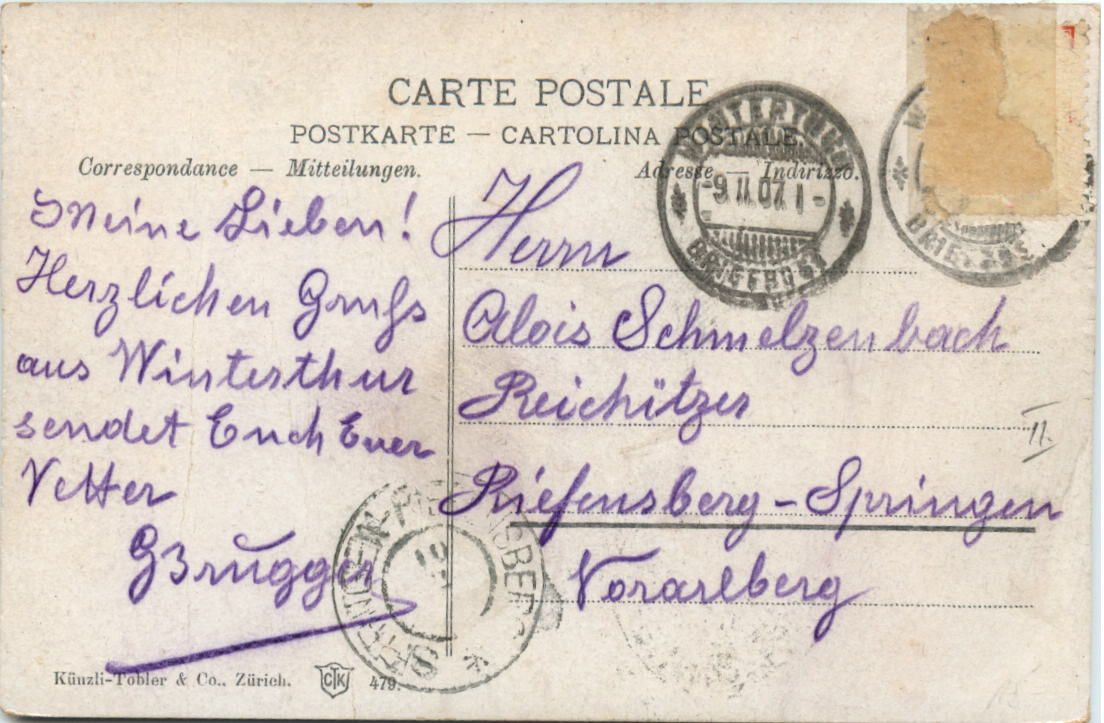 CARTE POSTALE
POSTKARTE — CARTOLINA POSTALE
Correspondance — Mitteilungen.
Adresse — Indirizzo.
WINTERTHUR
-9 II 07. 1 -
BRIEFPOST
Meine Lieben!
Herzlichen Gruß
aus Winterthur
sendet Euch Euer
Vetter
GBrugger
Herrn
Alois Schmelzenbach
Reichützer
Riefensberg-Springen
Vorarlberg
II.
Künzli-Tobler & Co., Zürich.
CTK
479.